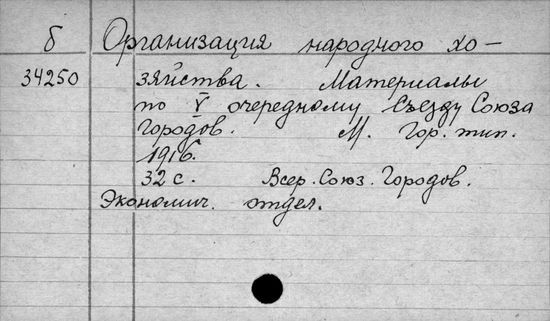 б Организация народного хо-
34250 зяйства. Материалы
по V очередному Съезду Союза
Городов. М. Гор. тип.
1916.
32 с. Всер. Союз. Городов.
Экономич. отдел.